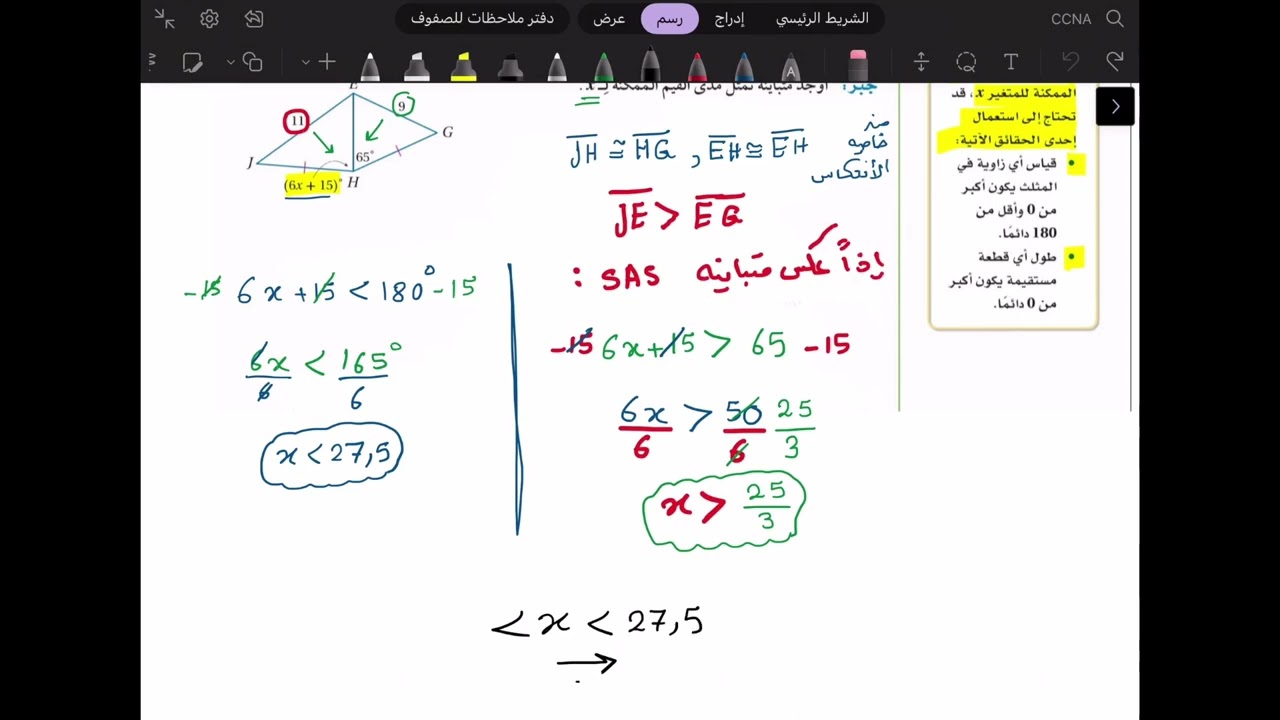 الشريط الرئيسي إدراج رسم عرض دفتر ملاحظات للصفوف
CCNA
جبر: أوجد متباينة تمثل مدى القيم الممكنة لـ x.
E
11
9
G
J
65°
(6x + 15)°
H
JH ≅ HG , EH ≅ EH من خاصية الانعكاس
JE > EG
إذاً عكس متباينة SAS :
-15 6x+15 > 65 -15
6x/6 > 50/6 25/3
x > 25/3
-15 6x+15 < 180° -15
6x/6 < 165°/6
x < 27,5
< x < 27,5
→
الممكنة للمتغير x، قد
تحتاج إلى استعمال
إحدى الحقائق الآتية:
• قياس أي زاوية في
المثلث يكون أكبر
من 0 وأقل من
180 دائمًا.
• طول أي قطعة
مستقيمة يكون أكبر
من 0 دائمًا.